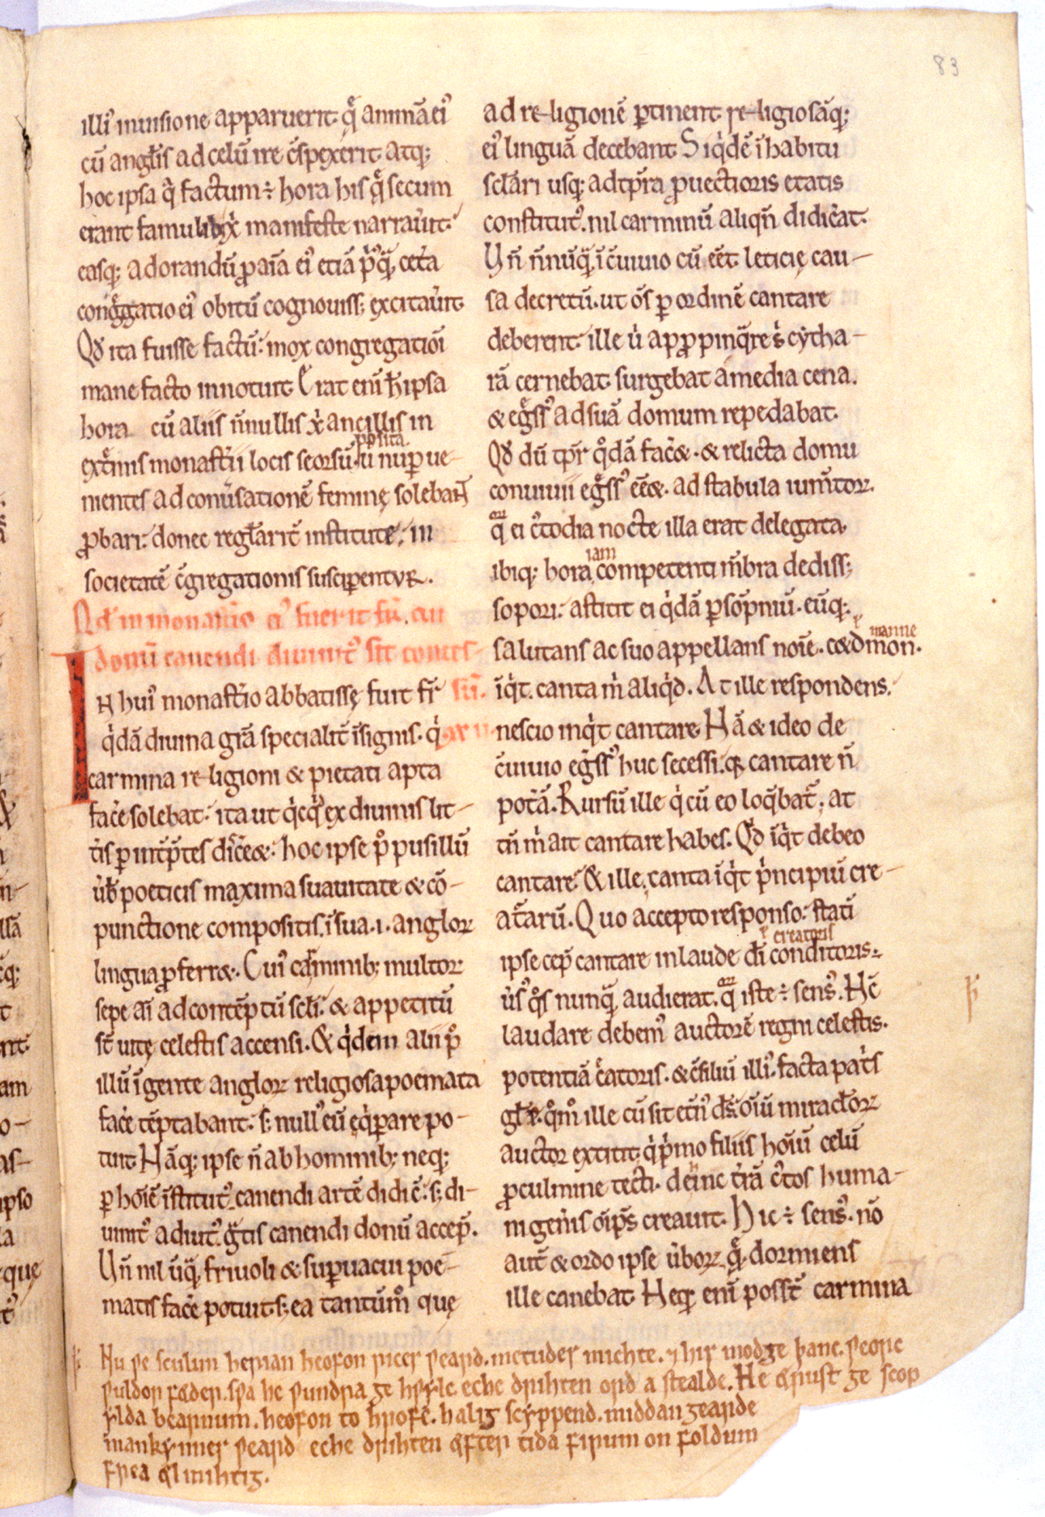 83
illi' inuisione apparuerit. q̄ animā ei'
cū angłis ad celū ire c̄spexerit. atq;
hoc ipsa q̇ factum ÷ hora his q̄ secum
erant famulib; xp̄i manifeste narrau̅it.
easq; adorandū p aīa ei' etiā p'usq̄ cet̄a
cong̊gatio ei' obitū cognouiss; excitau̅it.
Qd̄ ita fuisse factū: mox congregatiōi
mane facto innotuit. Erat enī h̄ ipsa
hora cū aliis n̄nullis xp̄i ancillis in
ppositā
ext̄mis monast̄ii locis seorsū. u̇ nup ue-
nientes ad conu̅sationē feminę solebaNt
pbari: donec regłarit̄ institutę, in
societatē c̄gregationis susciperentuR.
Qd̄ in monast̄io ei' fuerit fr̄. cui
donū canendi diuinit' sit conces-
sū.
IN hui' monast̄io abbatissę fuit fr̄
q̇dā diuina grā specialit̄ īsignis. q̇
carmina religioni & pietati apta
fac̄e solebat: ita ut q̇cq̇d ex diuinis lit-
t̄is p int̄p̄tes disc̄e&. hoc ipse p' pusillū
u̅b poeticis maxima suauitate & cō-
punctione compositis. ī sua .i. angloꝝ
lingua pferr&. Cui' carminib; multoꝝ
sepe aī ad contēptū sc̄li. & appetitū
st̄ uitę celestis accensi. & q̇dem alii p'
illū ī gente angloꝝ religiosa poemata
fac̄e tēptabant: s; null' eū ęq̇pare po-
tuit. Nāq; ipse n̄ ab hominib; neq;
p hoīē īstitut' canendi artē didiċ. s; di-
uinit' adiut' g̊tis canendi donū accep̄.
Un̄ nil ūq̄ friuoli & supuacui poē-
matis fac̄e potuit. s; ea tantūm̊ quę
ad religionē ptinent. religiosāq;
ei' linguā decebant. Siq̇dē ī habitu
sc̄lari usq; ad tp̄ra puectioris etatis
constitut'. nil carminū aliqn̄ didic̄at.
Un̄ n̄nūq̄ ī c̄uiuio cū eēt leticię cau-
sa decretū. ut ōs p ordinē cantare
deberent. ille u̇ appropinq̄re s' cytha-
rā cernebat. surgebat a media cena.
& eg̊ss' ad suā domum repedabat.
Qd̄ dū tp̄r q̊dā fac̄&. & relicta domu
conuiuii eg̊ss' eē&. ad stabula iumtoꝝ.
q̄ ei c'todia nocte illa erat delegata.
iam
ibiq; hora competenti m̄bra dediss;
sopori: astitit ei q̇dā p sōpniū. eūq;
manne
salutans ac suo appellans noīe. cedmon.
īq̇t. canta m̄ aliq̇d. At ille respondens.
nescio inq̇t cantare. Nā & ideo de
c̄uiuio eg̊ss' huc secessi. q̇ cantare n̄
pot̄ā. Rursū ille q̇ cū eo loq̄bat̄. at
tn̄ m̄ ait cantare habes. Qd̄ īq̇t debeo
cantare. & ille. canta īq̇t p̄ncipiū cre-
at̄arū. Quo accepto responso: stati
creatoris
ipse cep̄ cantare in laudē dī conditoris.
u̇s' q̊s nunq̄ audierat. q̄ iste ÷ sens'. Nc̄
laudare debem' auctorē regni celestis.
potentiā c̄atoris. & c̄siliū illi'. facta pat̄s
glę. q̊m̊ ille cū sit et̄n' d̄s. oīū miracłoꝝ
auctor extitit. q̇ p'mo filiis hoīū celū
p culmine tecti. deinc t̄rā c'tos huma-
ni gen̄is oīps̄ creauit. Hic ÷ sens'. nō
aut̄ & ordo ipse u̅boꝝ. q̄ dormiens
ille canebat. Neq; enī posst̄ carmina
Nu ƿe sculun herian heofon rices ƿeard. metudes michte. ⁊ his modȝe þanc. ƿeorc
ƿuldor fæder. sƿa he ƿundra ȝe hƿylc eche drihten ord a stealde. He ærust ȝe scop
ylda bearnum. heofon to hrofe. haliȝ scyppend. middan ȝearde
mankynnes ƿeard eche drihten æfter tida firum on foldum
frea ælmihtiȝ.